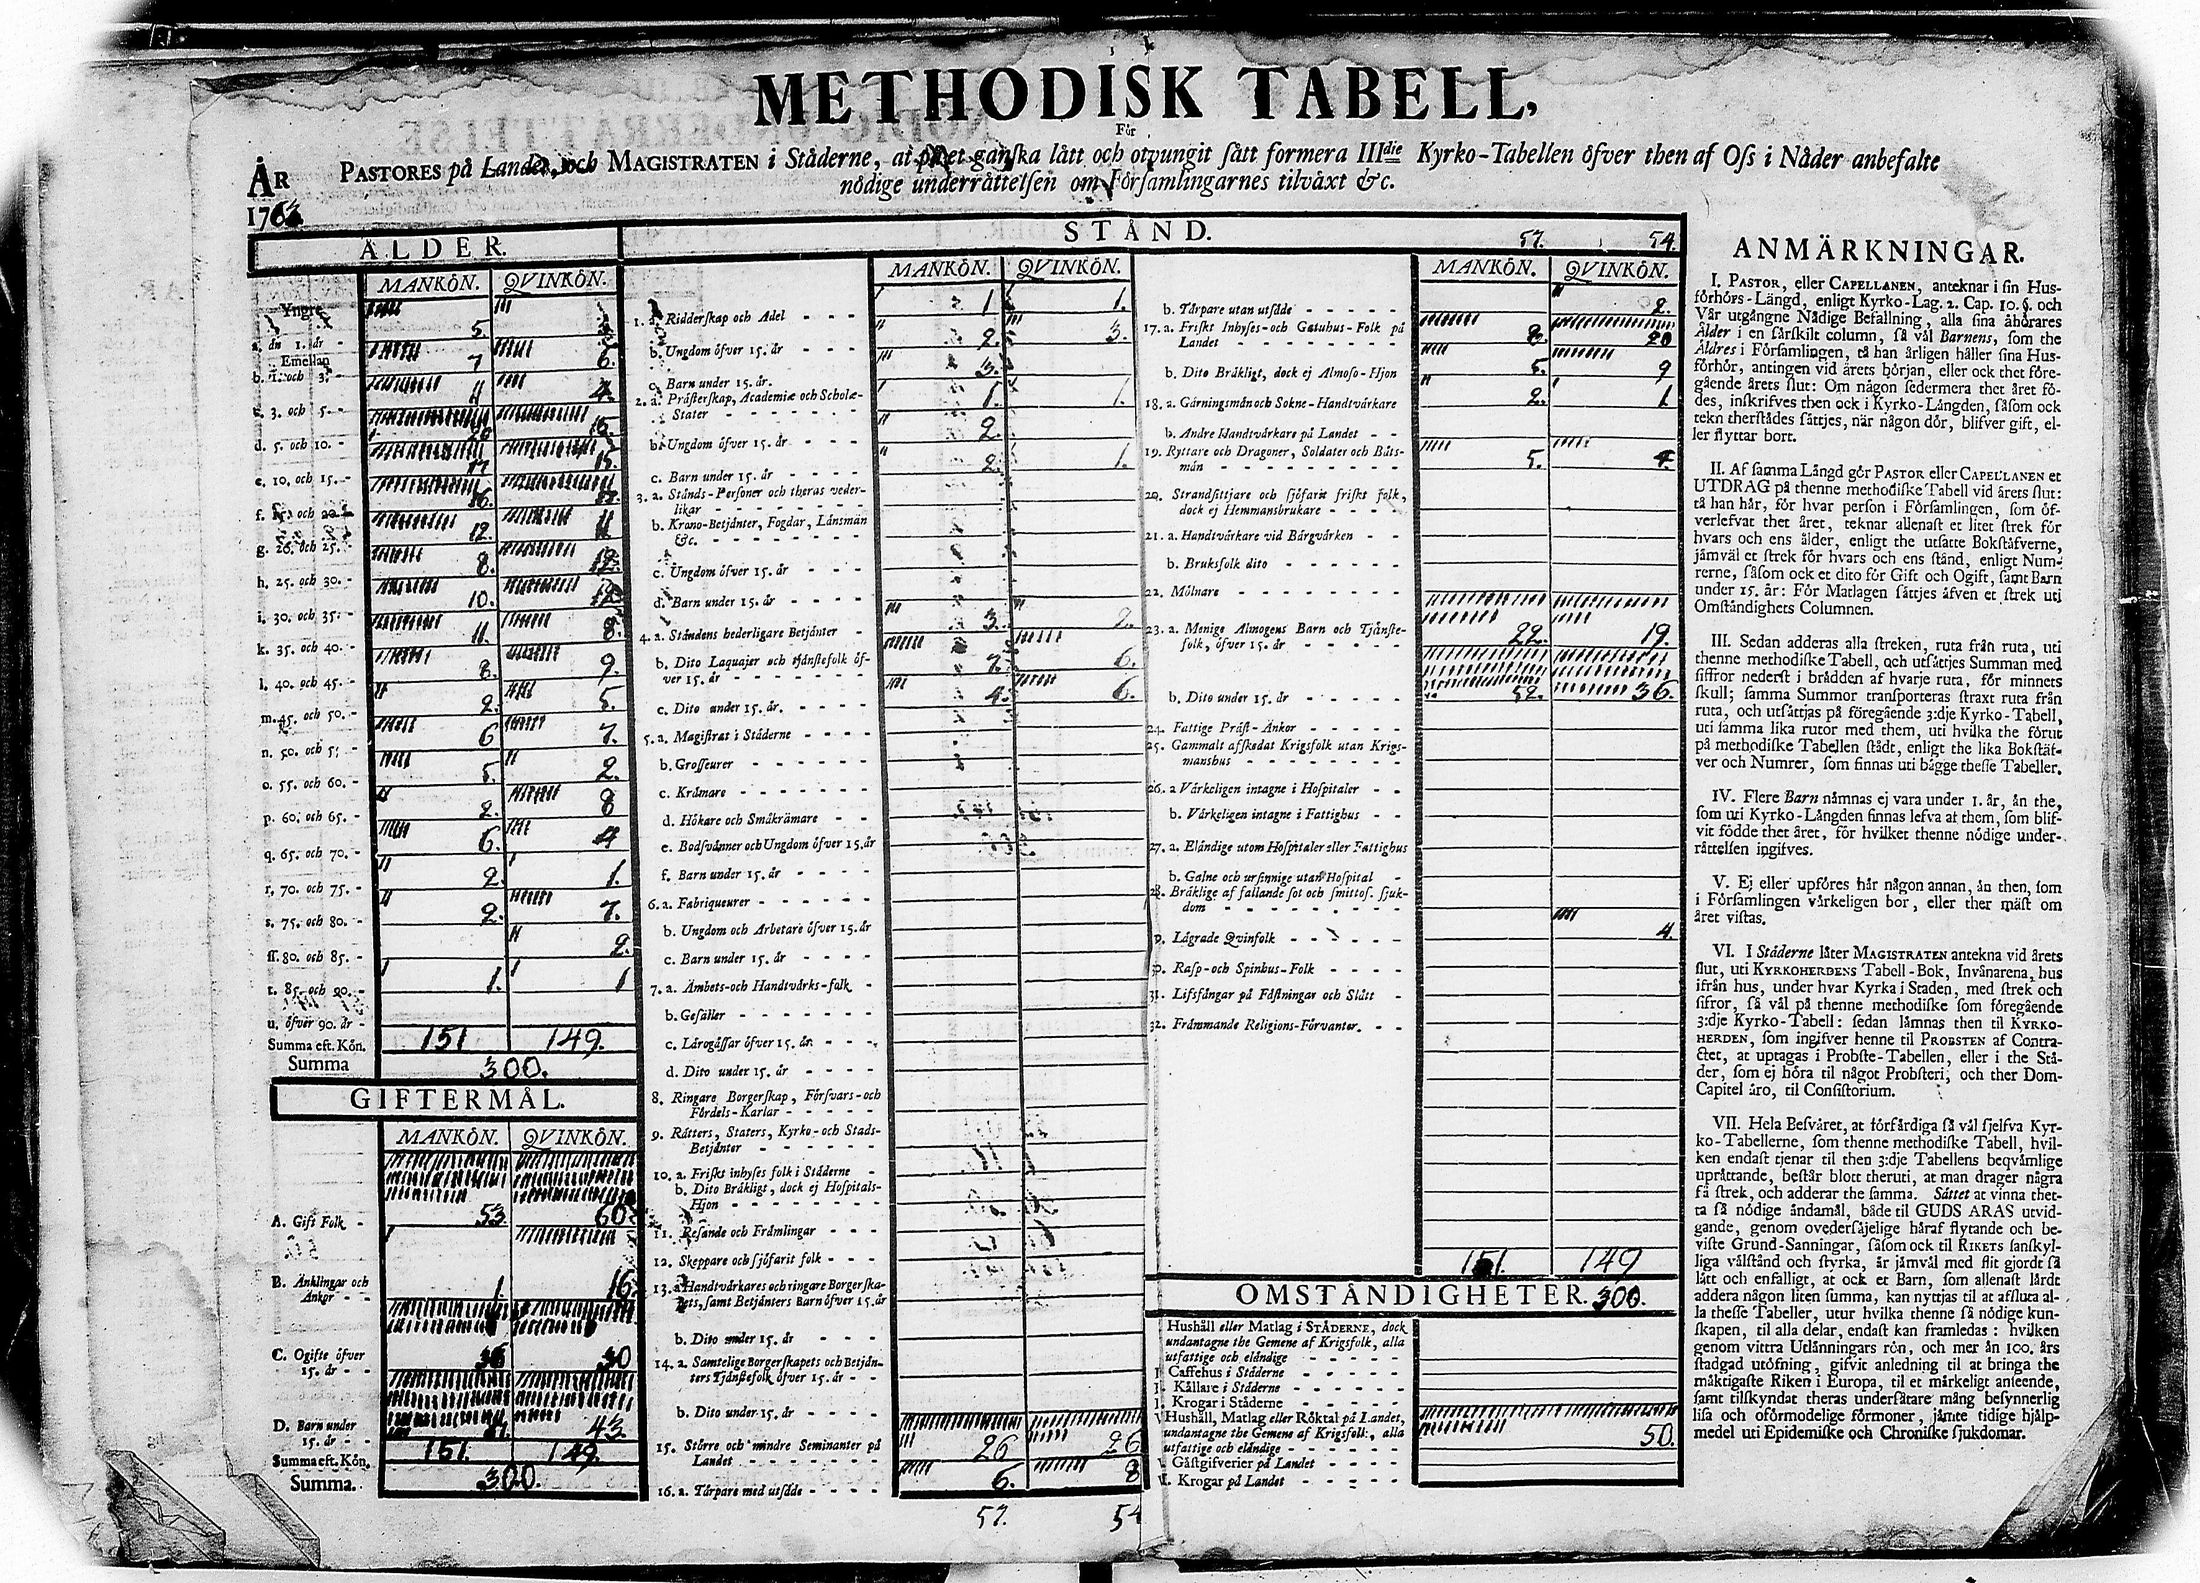 METHODISK TABELL,
För
PASTORES på Landet, och MAGISTRATEN i Städerne, at på et ganska lätt och otvungit sätt formera IIIdie Kyrko-Tabellen öfver then af Oss i Nåder anbefalte
nödige underrättelsen om Församlingarnes tilväxt &c.
ÅR
1763.
ÅLDER.
MANKÖN. QVINKÖN.
Yngre
a. än 1. år - 5.
Emellan
b. 1. och 3. - 7 6.
c. 3. och 5. - 11 4.
d. 5. och 10. - 20
e. 10. och 15. - 15.
f. 15. och 16.
g. och 25. - 12. 11
h. 25. och 30. - 8. 12.
i. 30. och 35. - 10.
k. 35. och 40. - 11. 8.
l. 40. och 45. - 8. 9.
m. 45. och 50. - 2. 5.
n. 50. och 6 7.
o. 55. och 60. - 5. 2.
p. 60. och 65. - 2. 8
q. 65. och 70. - 6. 4
r. 70. och 75. - 2. 1.
s. 75. och 80. - 2. 7.
ff. 80. och 85. - 2.
t. 85. och 90. - 1. 1
u. öfver 90. år -
Summa eft. Kön. 151 149.
Summa 300.
GIFTERMÅL.
MANKÖN. QVINKÖN.
A. Gift Folk - 53 60
B. Änklingar och
Änkor - - 1 16
C. Ogifte öfver
15. år - - 36 30
D. Barn under
15. år - - 43
Summa eft. Kön. 151. 149.
Summa. 300.
STÅND.
MANKÖN. QVINKÖN.
1. a. Ridderskap och Adel - - - 1 1.
b. Ungdom öfver 15. år - - - - 2. 3.
c. Barn under 15. år. 3.
2. a. Prästerskap, Academiæ och Scholæ-
Stater - - - - - - - 1. 1.
b. Ungdom öfver 15. år - - - - 2.
c. Barn under 15. år - - - - 2. 1.
3. a. Stånds-Personer och theras veder-
likar - - - - - - - -
b. Krono-Betjänter, Fogdar, Länsmän
&c. - - - - - - - -
c. Ungdom öfver 15. år - - - -
d. Barn under 15. år - - - -
4. a. Ståndens hederligare Betjänter - 3. 2.
b. Dito Laquajer och tjänstefolk öf-
ver 15. år - - - - - - - 7. 6.
c. Dito under 15. år. - - - - 4. 6.
5. a. Magistrat i Städerne - - - -
b. Grosseurer - - - - - -
c. Krämare - - - - - -
d. Hökare och Småkrämare - -
e. Bodsvänner och Ungdom öfver 15. år
f. Barn under 15. år - - - -
6. a. Fabriqueurer - - - - - -
b. Ungdom och Arbetare öfver 15. år
c. Barn under 15. år - - - -
7. a. Ämbets-och Handtvärks-folk -
b. Gesäller - - - - - - -
c. Lärogåssar öfver 15. år - - -
d. Dito under 15. år - - - -
8. Ringare Borgerskap, Försvars-och
Fördels-Karlar - - - - -
9. Rätters, Staters, Kyrko-och Stads-
Betjänter - - - - - -
10. a. Friskt inhyses folk i Städerne -
b. Dito Bräkligt, dock ej Hospitals-
Hjon - - - - - - - -
11. Resande och Främlingar - - -
12. Skeppare och sjöfarit folk - - -
13. a. Handtvärkares och ringare Borgerska-
pets, samt Betjänters Barn öfver 15. år
b. Dito under 15. år - - -
14. a. Samtelige Borgerskapets och Betjän-
ters Tjänstefolk öfver 15. år - -
b. Dito under 15. år - - - -
15. Större och mindre Seminanter på
Landet - - - - - - - 26 26
16. a. Tårpare med utsäde - - - - 6. 8
57. 54
57. 54.
MANKÖN. QVINKÖN.
b. Tårpare utan utsäde - - - - - 2.
17. a. Friskt Inhyses-och Gatuhus-Folk på
Landet - - - - - - - - 20
b. Dito Bräkligt, dock ej Almoso-Hjon 5. 9
18. a. Gärningsmän och Sokne-Handtvärkare 2. 1.
b. Andre Handtvärkare på Landet - -
19. Ryttare och Dragoner, Soldater och Båts-
män - - - - - - - - - 5. 4.
20. Strandsittjare och sjöfarit friskt folk,
dock ej Hemmansbrukare - - - -
21. a. Handtvärkare vid Bärgvärken - -
b. Bruksfolk dito - - - - - -
22. Mölnare - - - - - - - -
23. a. Menige Almogens Barn och Tjänste-
folk, öfver 15. år - - - - - - 22. 19.
b. Dito under 15. år - - - - - 52. 36.
24. Fattige Präst-Änkor - - - - -
25. Gammalt afskedat Krigsfolk utan Krigs-
manshus - - - - - - - -
26. a Värkeligen intagne i Hospitaler - -
b. Värkeligen intagne i Fattighus - -
27. a. Eländige utom Hospitaler eller Fattighus
b. Galne och ursinnige utan Hospital -
28. Bräklige af fallande sot och smittos. sjuk-
dom - - - - - - - - - -
Lägrade Qvinfolk - - - - - - 4.
Rasp-och Spinhus-Folk - - - -
31. Lifsfångar på Fästningar och Slått -
32. Främmande Religions-Förvanter. - -
151. 149
OMSTÄNDIGHETER. 300.
Hushåll eller Matlag i STÄDERNE, dock
undantagne the Gemene af Krigsfolk, alla
utfattige och eländige - - - - -
Caffehus i Städerne - - - - -
Källare i Städerne - - - - - -
Krogar i Städerne - - - - - -
Hushåll, Matlag eller Röktal på Landet,
undantagne the Gemene af Krigsfolk, alla
utfattige och eländige - - - - - 50.
Gästgifverier på Landet - - - -
Krogar på Landet - - - -
ANMÄRKNINGAR.
I. PASTOR, eller CAPELLANEN, anteknar i sin Hus-
förhörs-Längd, enligt Kyrko-Lag. 2. Cap. 10. §. och
Vår utgångne Nådige Befallning, alla sina åhörares
Ålder i en särskilt column, så väl Barnens, som the
Äldres i Församlingen, tå han årligen håller sina Hus-
förhör, antingen vid årets början, eller ock thet före-
gående årets slut: Om någon sedermera thet året fö-
des, inskrifves then ock i Kyrko-Längden, såsom ock
tekn therstädes sättjes, när någon dör, blifver gift, el-
ler flyttar bort.
II. Af samma Längd gör PASTOR eller CAPELLANEN et
UTDRAG på thenne methodiske Tabell vid årets slut:
tå han här, för hvar person i Församlingen, som öf-
verlefvat thet året, teknar allenast et litet strek för
hvars och ens ålder, enligt the utsatte Bokstäfverne,
jämväl et strek för hvars och ens stånd, enligt Num-
rerne, såsom ock et dito för Gift och Ogift, samt Barn
under 15. år: För Matlagen sättjes äfven et strek uti
Omständighets Columnen.
III. Sedan adderas alla streken, ruta från ruta, uti
thenne methodiske Tabell, och utsättjes Summan med
siffror nederst i brädden af hvarje ruta, för minnets
skull; samma Summor transporteras straxt ruta från
ruta, och utsättjas på föregående 3:dje Kyrko-Tabell,
uti samma lika rutor med them, uti hvilka the förut
på methodiske Tabellen städt, enligt the lika Bokstäf-
ver och Numrer, som finnas uti bägge thesse Tabeller.
IV. Flere Barn nämnas ej vara under 1. år, än the,
som uti Kyrko-Längden finnas lefva af them, som blif-
vit födde thet året, för hvilket thenne nödige under-
rättelsen ingifves.
V. Ej eller upföres här någon annan, än then, som
i Församlingen värkeligen bor, eller ther mäst om
året vistas.
VI. I Städerne låter MAGISTRATEN antekna vid årets
slut, uti KYRKOHERDENS Tabell-Bok, Invånarena, hus
ifrån hus, under hvar Kyrka i Staden, med strek och
sifror, så väl på thenne methodiske som föregående
3:dje Kyrko-Tabell: sedan lämnas then til KYRKO-
HERDEN, som ingifver henne til PROBSTEN af Contra-
ctet, at uptagas i Probste-Tabellen, eller i the Stä-
der, som ej höra til något Probsteri, och ther Dom-
Capitel äro, til Consistorium.
VII. Hela Besväret, at förfärdiga så väl sjelfva Kyr-
ko-Tabellerne, som thenne methodiske Tabell, hvil-
ken endast tjenar til then 3:dje Tabellens beqvämlige
uprättande, består blott theruti, at man drager några
få strek, och adderar the samma. Sättet at vinna thet-
ta så nödige ändamål, både til GUDS ÄRAS utvid-
gande, genom ovedersäjelige häraf flytande och be-
viste Grund-Sanningar, såsom ock til RIKETS sanskyl-
liga välstånd och styrka, är jämväl med flit gjordt så
lätt och enfalligt, at ock et Barn, som allenast lärdt
addera någon liten summa, kan nyttjas til at afsluta al-
la thesse Tabeller, utur hvilka thenne så nödige kun-
skapen, til alla delar, endast kan framledas: hvilken
genom vittra Utlänningars rön, och mer än 100. års
stadgad utöfning, gifvit anledning til at bringa the
mäktigaste Riken i Europa, til et märkeligt anseende,
samt tilskyndat theras undersåtare mång besynnerlig
lisa och oförmodelige förmoner, jämte tidige hjälp-
medel uti Epidemiske och Chroniske sjukdomar.